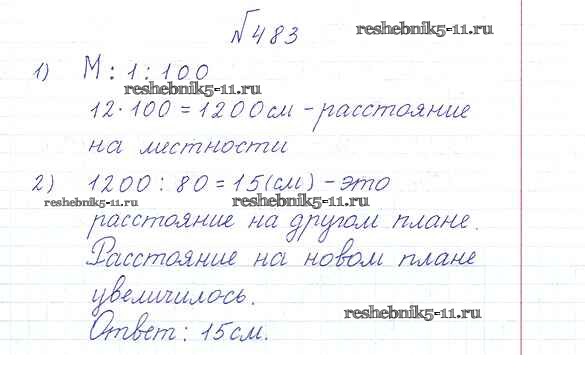 №483 reshebnik5-11.ru
1) М : 1 : 100
reshebnik5-11.ru
12·100=1200см-расстояние
на местности
2) 1200 : 80=15(см)-это
reshebnik5-11.ru reshebnik5-11.ru
расстояние на другом плане.
Расстояние на новом плане
увеличилось.
reshebnik5-11.ru
Ответ: 15см.